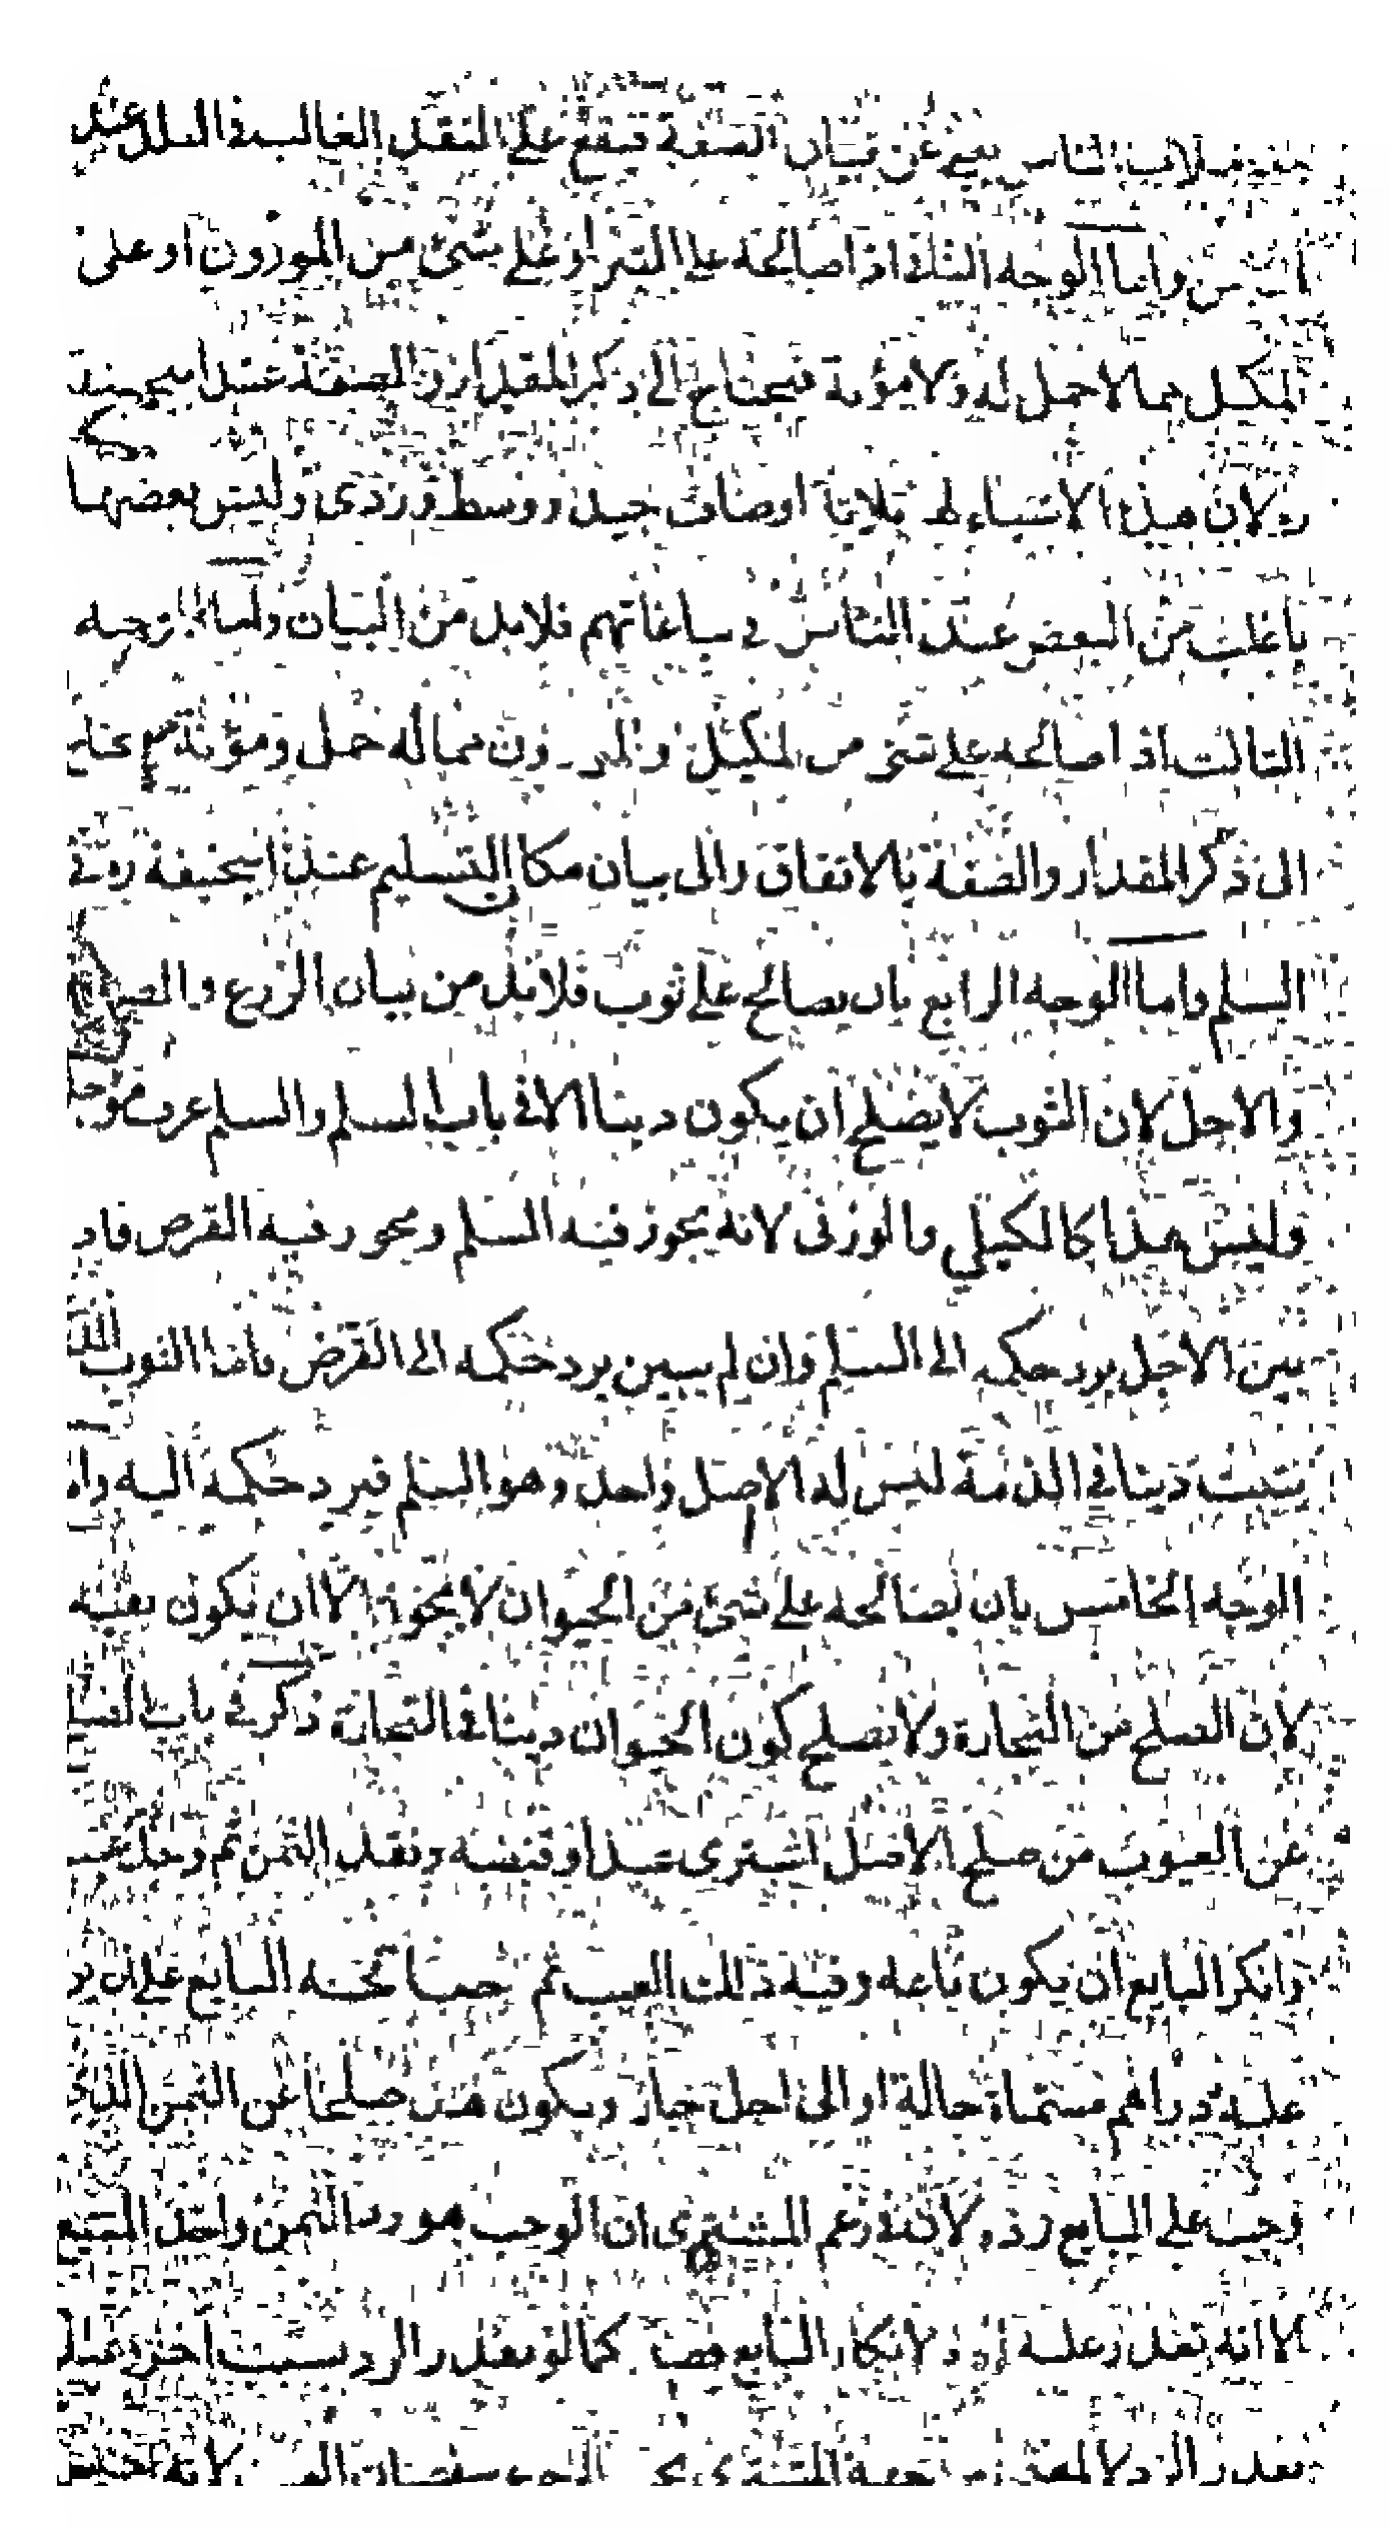 الناس يغني عن بيان الصفة فيقع على النقد الغالب في البلد عند
واما الوجه الثاني اذا صالحه على التبر او على شيء من الموزون او على
المكيل مما لا حمل له ولا مؤنة فيحتاج الى ذكر المقدار والصفة عند ابي حنيفة
لان هذه الاشياء لها ثلاثة اوصاف جيد ووسط وردى وليس بعضها
باغلب من البعض عند الناس في بياعاتهم فلا بد من البيان واما الوجه
الثالث اذا صالحه على شي من المكيل والموزون مما له حمل ومؤنة يحتاج
الى ذكر المقدار والصفة بالاتفاق والى بيان مكان التسليم عند ابيحنيفة رد في
السلم واما الوجه الرابع بان يصالح على ثوب فلا بد من بيان الزرع والصفة
والاجل لان الثوب لا يصلح ان يكون دينا الا في باب السلم والسلم عرف موجلا
وليس هذا كالكيلي والوزني لانه يجوز فيه السلم ويجوز فيه القرض فاد
بين الاجل يرد حكمه الى السلم وان لم يبين يرد حكمه الى القرض فاما الثوب الذي
يثبت دينا في الذمة ليس له الا اصل واحد وهو السلم فيرد حكمه اليه واما
الوجه الخامس بان يصالحه على شئ من الحيوان لا يجوز الا ان يكون بعينه
لان الصلح من التجارة ولا يصلح كون الحيوان دينا في التجارة ذكر في باب الصلح
عن العيوب من صلح الاصل اشترى عبدا وقبضه ونقد الثمن ثم وجد عيبا
وانكر البايع ان يكون باعه وفيه ذلك العيب ثم صالحه البايع على ان يرد
عليه دراهم مسماة حالة او الى اجل جاز ويكون هذا صلحا عن الثمن الذي
وجب على البايع رده لانه زعم المشترى ان الواجب هو رد الثمن واخذ المبيع
الا انه تعذر عليه الرد لانكار البايع كما لو تعذر الرد بسبب اخر
تعذر الرد لا لمعنى من جهة المشترى الرجوع بنقصان العيب لانه